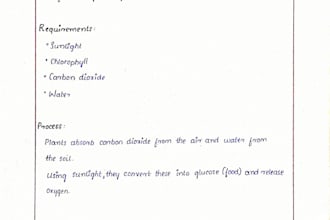 Requirements:
* Sunlight
* Chlorophyll
* Carbon dioxide
* Water
Process:
Plants absorb carbon dioxide from the air and water from
the soil.
Using sunlight, they convert these into glucose (food) and release
oxygen.